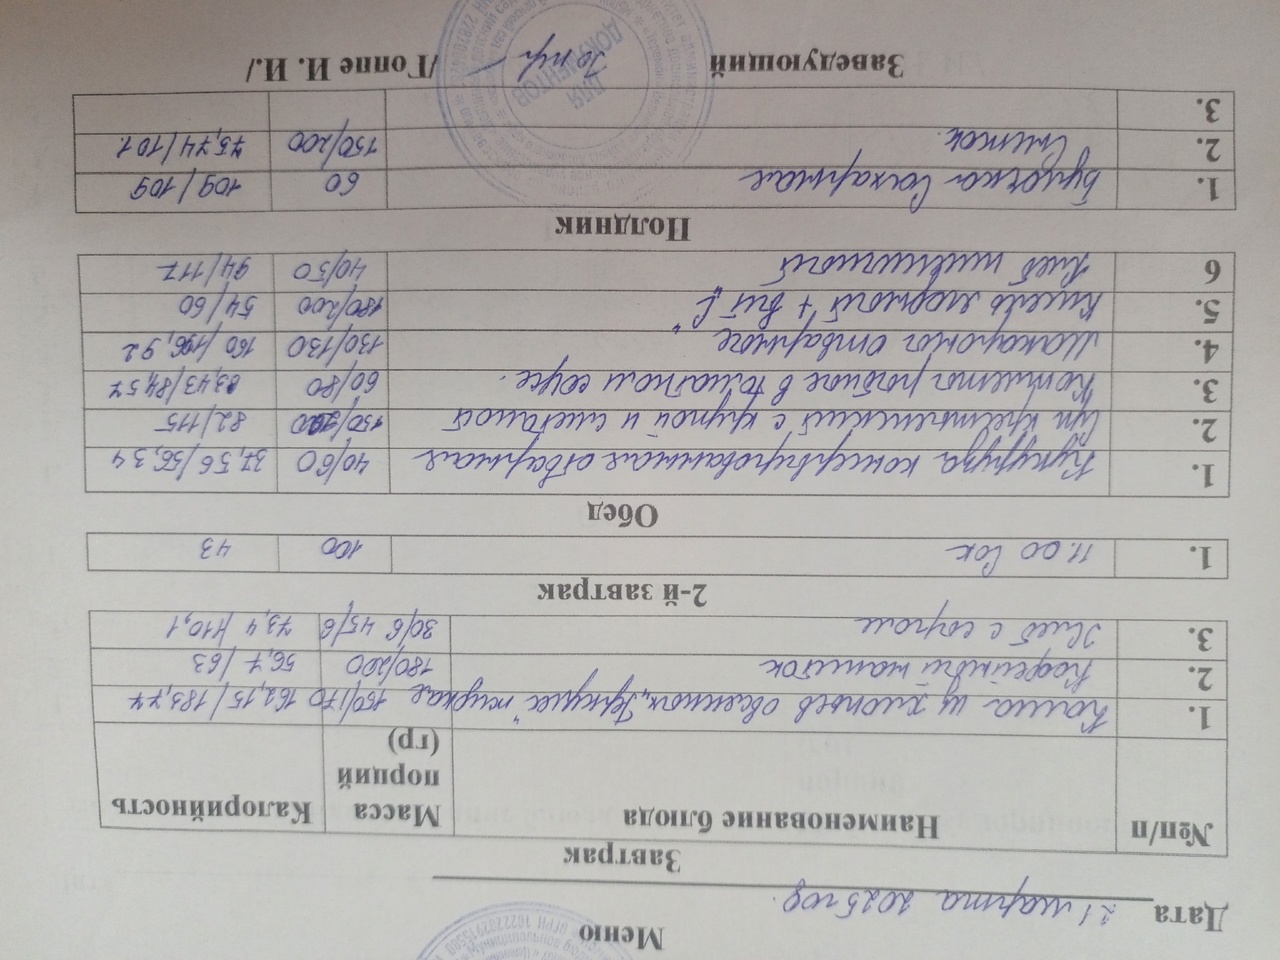 Меню
Дата 21 марта 2025 год.
Завтрак
№п/п Наименование блюда Масса порций (гр) Калорийность
1. Каша из хлопьев овсяных „Геркулес" жидкая 150/170 162,15/183,77
2. Кофейный напиток 180/200 56,7/63
3. Хлеб с сыром 30/6 45/6 73,4/110,1
2-й завтрак
1. 11.00 Сок 100 43
Обед
1. Кукуруза консервированная отварная 40/60 37,56/56,34
2. Суп крестьянский с крупой и сметаной 150/200 82/115
3. Котлета рыбная в томатном соусе. 60/80 63,43/84,57
4. Макароны отварные 130/130 160/196,92
5. Кисель ягодный + Вит „С" 180/200 54/60
6 Хлеб пшеничный 40/50 94/117
Полдник
1. Булочка Сахарная 60 109/109
2. Снежок. 150/200 75,74/101
3.
Заведующий /Гоппе И. И./
ДЛЯ ДОКУМЕНТОВ